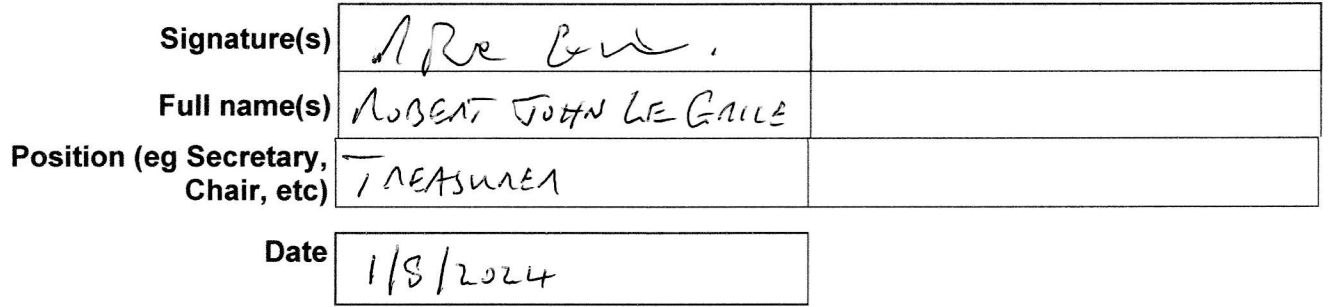 Signature(s)
Full name(s) ROBERT JOHN LE GRICE
Position (eg Secretary,
Chair, etc) TREASURER
Date 1/8/2024